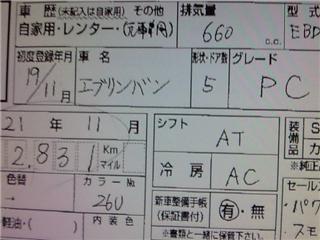 車 歴 (未記入は自家用) その他 排気量 型式
自家用・レンター・(元事業用) 660 c.c. EBD
初度登録年月 車 名 形状・ドア数 グレード
19/11月 エブリンバン 5 PC
21 年 11 月 シフト AT 装備品
2,831 Km マイル 冷 房 AC ※純正
色替 カラーNo. 新車整備手帳 セールス
→ 26U (保証書付) 有・無 ・パワ
軽油・( ) 内装色 ※書類と一緒に保管して下さい。 スモ